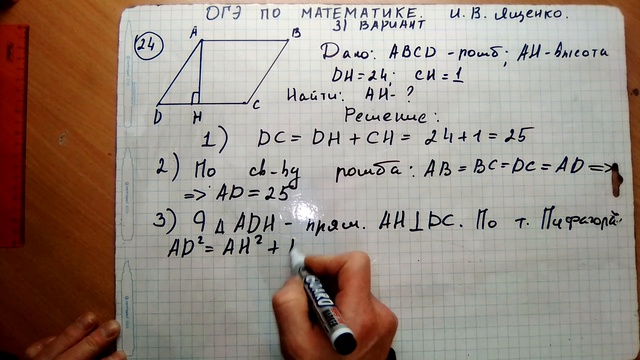 ОГЭ ПО МАТЕМАТИКЕ. И.В. Ященко.
31 ВАРИАНТ
24
A
B
Дано: ABCD - ромб; AH - высота
DH = 24; CH = 1
Найти: AH - ?
D
H
C
Решение:
1) DC = DH + CH = 24 + 1 = 25
2) По св-ву ромба: AB = BC = DC = AD =>
=> AD = 25
3) Δ ADH - прям. AH ⊥ DC. По т. Пифагора
AD² = AH² +